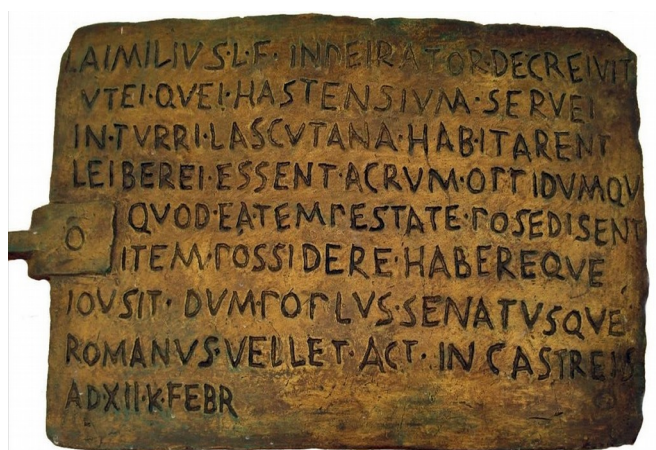 L·AIMILIVS·L·F·INPEIRATOR·DECREIVIT
VTEI·QVEI·HASTENSIVM·SERVEI
IN·TVRRI·LASCVTANA·HABITARENT
LEIBEREI·ESSENT·ACRVM·OPPIDVMQV
QVOD·EA·TEMPESTATE·POSEDISENT
ITEM·POSSIDERE·HABEREQVE
IOVSIT·DVM·POPLVS·SENATVSQVE
ROMANVS·VELLET·ACT·IN CASTREIS
A·D·XII·K·FEBR